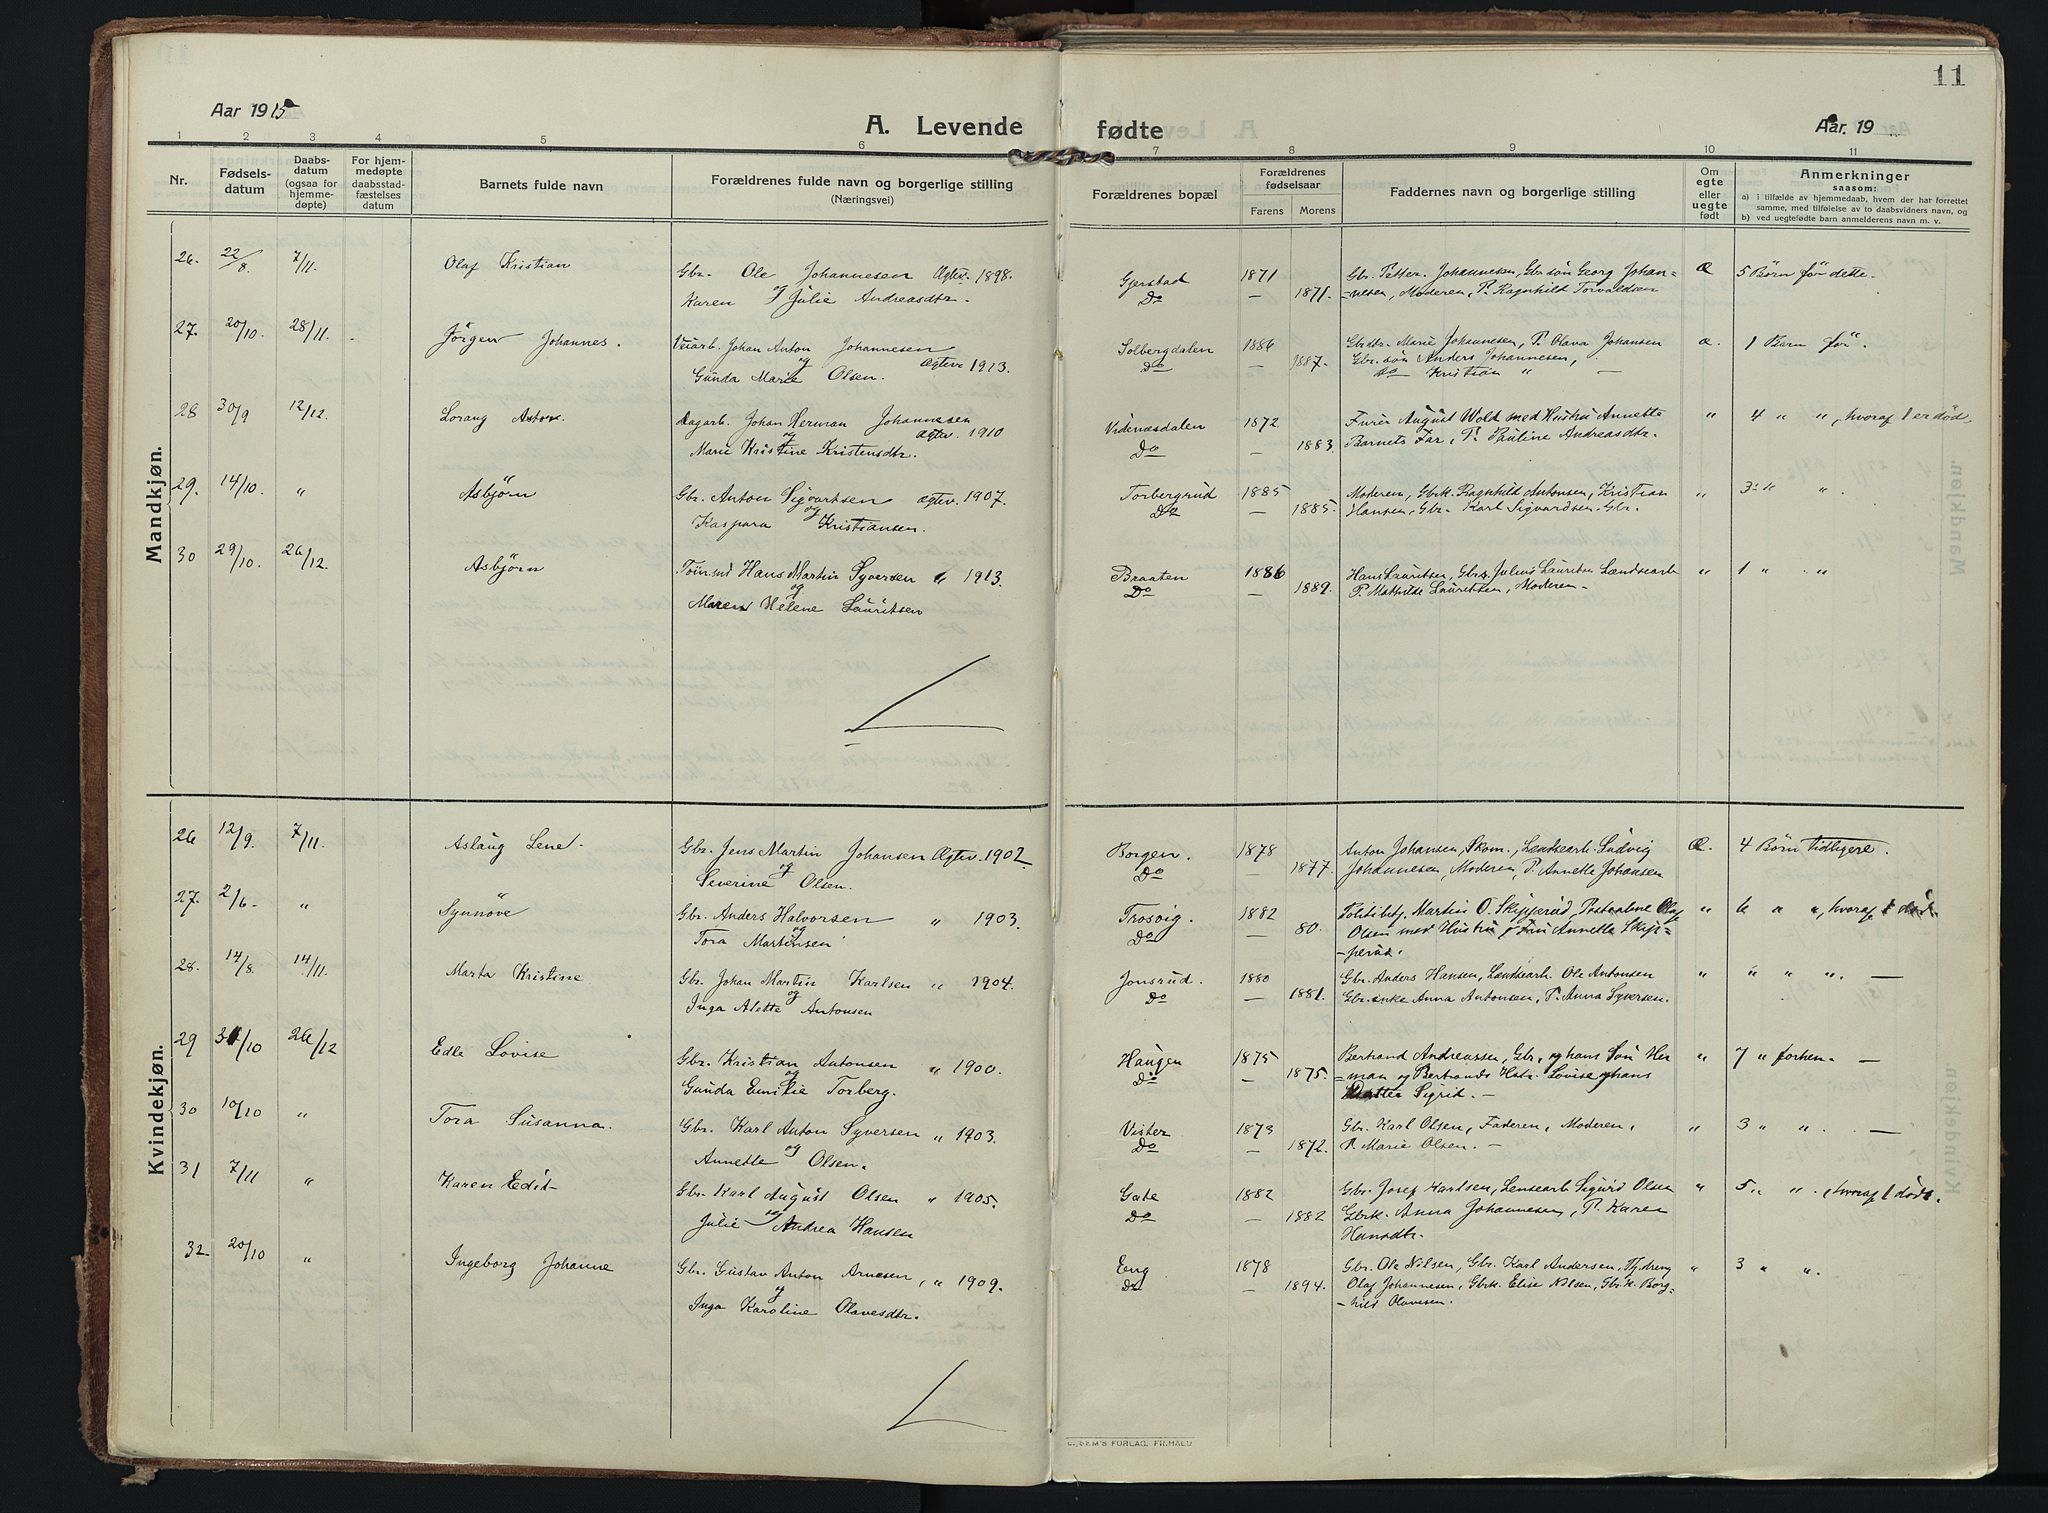 11
Aar 1915
A. Levende fødte
Aar 19
1 2 3 4 5 6 7 8 9 10 11
Nr.
Fødsels-
datum
Daabs-
datum
(ogsaa for
hjemme-
døpte)
For hjem-
medøpte
daabsstad-
fæstelses
datum
Barnets fulde navn
Forældrenes fulde navn og borgerlige stilling
(Næringsvei)
Forældrenes bopæl
Forældrenes
fødselsaar
Farens Morens
Faddernes navn og borgerlige stilling
Om
egte
eller
uegte
født
Anmerkninger
saasom:
a) i tilfælde av hjemmedaab, hvem der har forrettet
samme, med tilføielse av to daabsvidners navn, og
b) ved uegtefødte barn anmelderens navn m. v.
Mandkjøn.
26. 22/8. 7/11. Olaf Kristian Gbr. Ole Johannesen Ægtev. 1898. Gjerstad 1871 Gbr. Petter Johannesen, Gbr søn Georg Johan= Æ 5 Børn før dette.
og
Karen Julie Andreasdtr. Do — 1871. =nesen, Moderen, P. Ragnhild Torvaldsen
27. 20/10. 28/11. Jörgen Johannes. Veiarb. Johan Anton Johannesen Solbergdalen 1886 Gbrdtr. Marie Johannesen, P. Olava Johansen æ. 1 Barn før.
og Ægtev 1913.
Gunda Marie Olsen. Do — 1887. Gbr. søn Anders Johannesen,
Do Kristian " —
28 30/9 12/12. Lorang Anton. Dagarb. Johan Herman Johannesen Videnæsdalen 1872 Furer August Wold med Hustru Annette " 4 " ", hvoraf 1 er død
og Ægtev. 1910
Marie Kristine Kristensdtr. Do — 1883. Barnets Far, P. Pauline Andreasdtr.
29. 14/10. " Asbjörn Gbr. Anton Sigvartsen Ægtev. 1907. Torbergrud 1885 Moderen, Gbrk. Ragnhild Antonsen, Kristian " 3 " ".
og
Kaspara Kristiansen. Do — 1885. Hansen, Gbr. Karl Sigvardsen. Gbr.
30 29/10. 26/12. Asbjörn Hans Martin Syversen " 1913. Braaten 1886 Hans Lauritsen, Gbr. Julius Lauritsen Lændsearb " 1 " "
og
Maren Helene Lauritsen Do — 1889. P. Mathilde Lauritsen, Moderen —
Kvindekjøn.
26 12/9. 7/11. Aslaug Lene. Gbr. Jens Martin Johansen Ægtev. 1902 Borgen. 1878 Anton Johansen, Skom., Lændsearb. Ludvig Æ. 4 Børn tidligere.
og
Severine Olsen. Do — 1877. Johannesen, Moderen, P. Annette Johansen
27. 2/6. " Synnöve Gbr. Anders Halvorsen " 1903. Trosvig. 1882 Politibetj. Martin O. Skipperud, Postaabne Olaf " 6 " ", hvoraf 1 død.
og
Tora Martensen Do — 80. Olsen med Hustru, Fru Annette Skip=
=perud.
28. 14/8. 14/11. Marta Kristine Gbr. Johan Martin Karlsen " 1904. Jonsrud. 1880 Gbr. Anders Hansen, Lændsearb. Ole Antonsen " " " ". —
og
Inga Alette Antonsen Do — 1881. Gbr. enke Anna Antonsen, P. Anna Syversen.
29 31/10 26/12 Edle Lovise Gbr. Kristian Antonsen " 1900. Haugen 1875 Bertrand Andreassen, Gbr., og hans Søn Her " 7 " forhen —
og
Gunda Emilie Torberg. Do — 1875. =man og Bertrands Hstr. Lovise og hans
Datter Sigrid. —
30 10/10 " Tora Susanna. Gbr. Karl Anton Syversen " 1903. Vister 1873 Gbr. Karl Olsen, Faderen, Moderen, " 3 " ". —
og
Annette Olsen. Do — 1872. P. Marie Olsen. —
31 7/11 " Karen Edit Gbr. Karl August Olsen " 1905. Gate 1882 Gbr. Josef Karlsen, Lensearb Sigurd Olsen " 5 " ", hvoraf 1 død.
og
Julie Andrea Hansen Do — 1882 Gbrk. Anna Johannesen, P. Karen
Hansdtr.
32 20/10 " Ingeborg Johanne Gbr. Gustav Anton Arnesen, " 1909. Eng 1878 Gbr. Ole Nilsen, Gbr. Karl Andersen, Tjdreng " 3 " ".
og
Inga Karoline Olavesdtr. Do — 1894. Olaf Johannesen, Gbrk. Elise Nilsen, Gbr. k. Borg=
=hild Olavesen.
FORLAG. FR.HALD